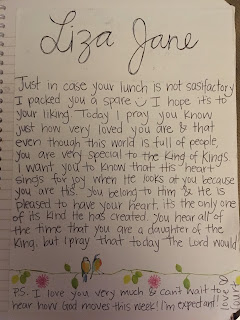 Liza Jane
Just in case your lunch is not sasifactory
I packed you a spare I hope its to
your liking. Today I pray you know
just how very loved you are & that
even though this world is full of people,
you are very special to the King of Kings.
I want you to know that His heart
sings for joy when He looks at you because
you are His. You belong to Him & He is
pleased to have your heart, its the only one
of its kind He has created. You hear all of
the time that you are a daughter of the
King, but I pray that today the Lord would
P.S. I love you very much & can't wait to
hear how God moves this week! I'm expectant!